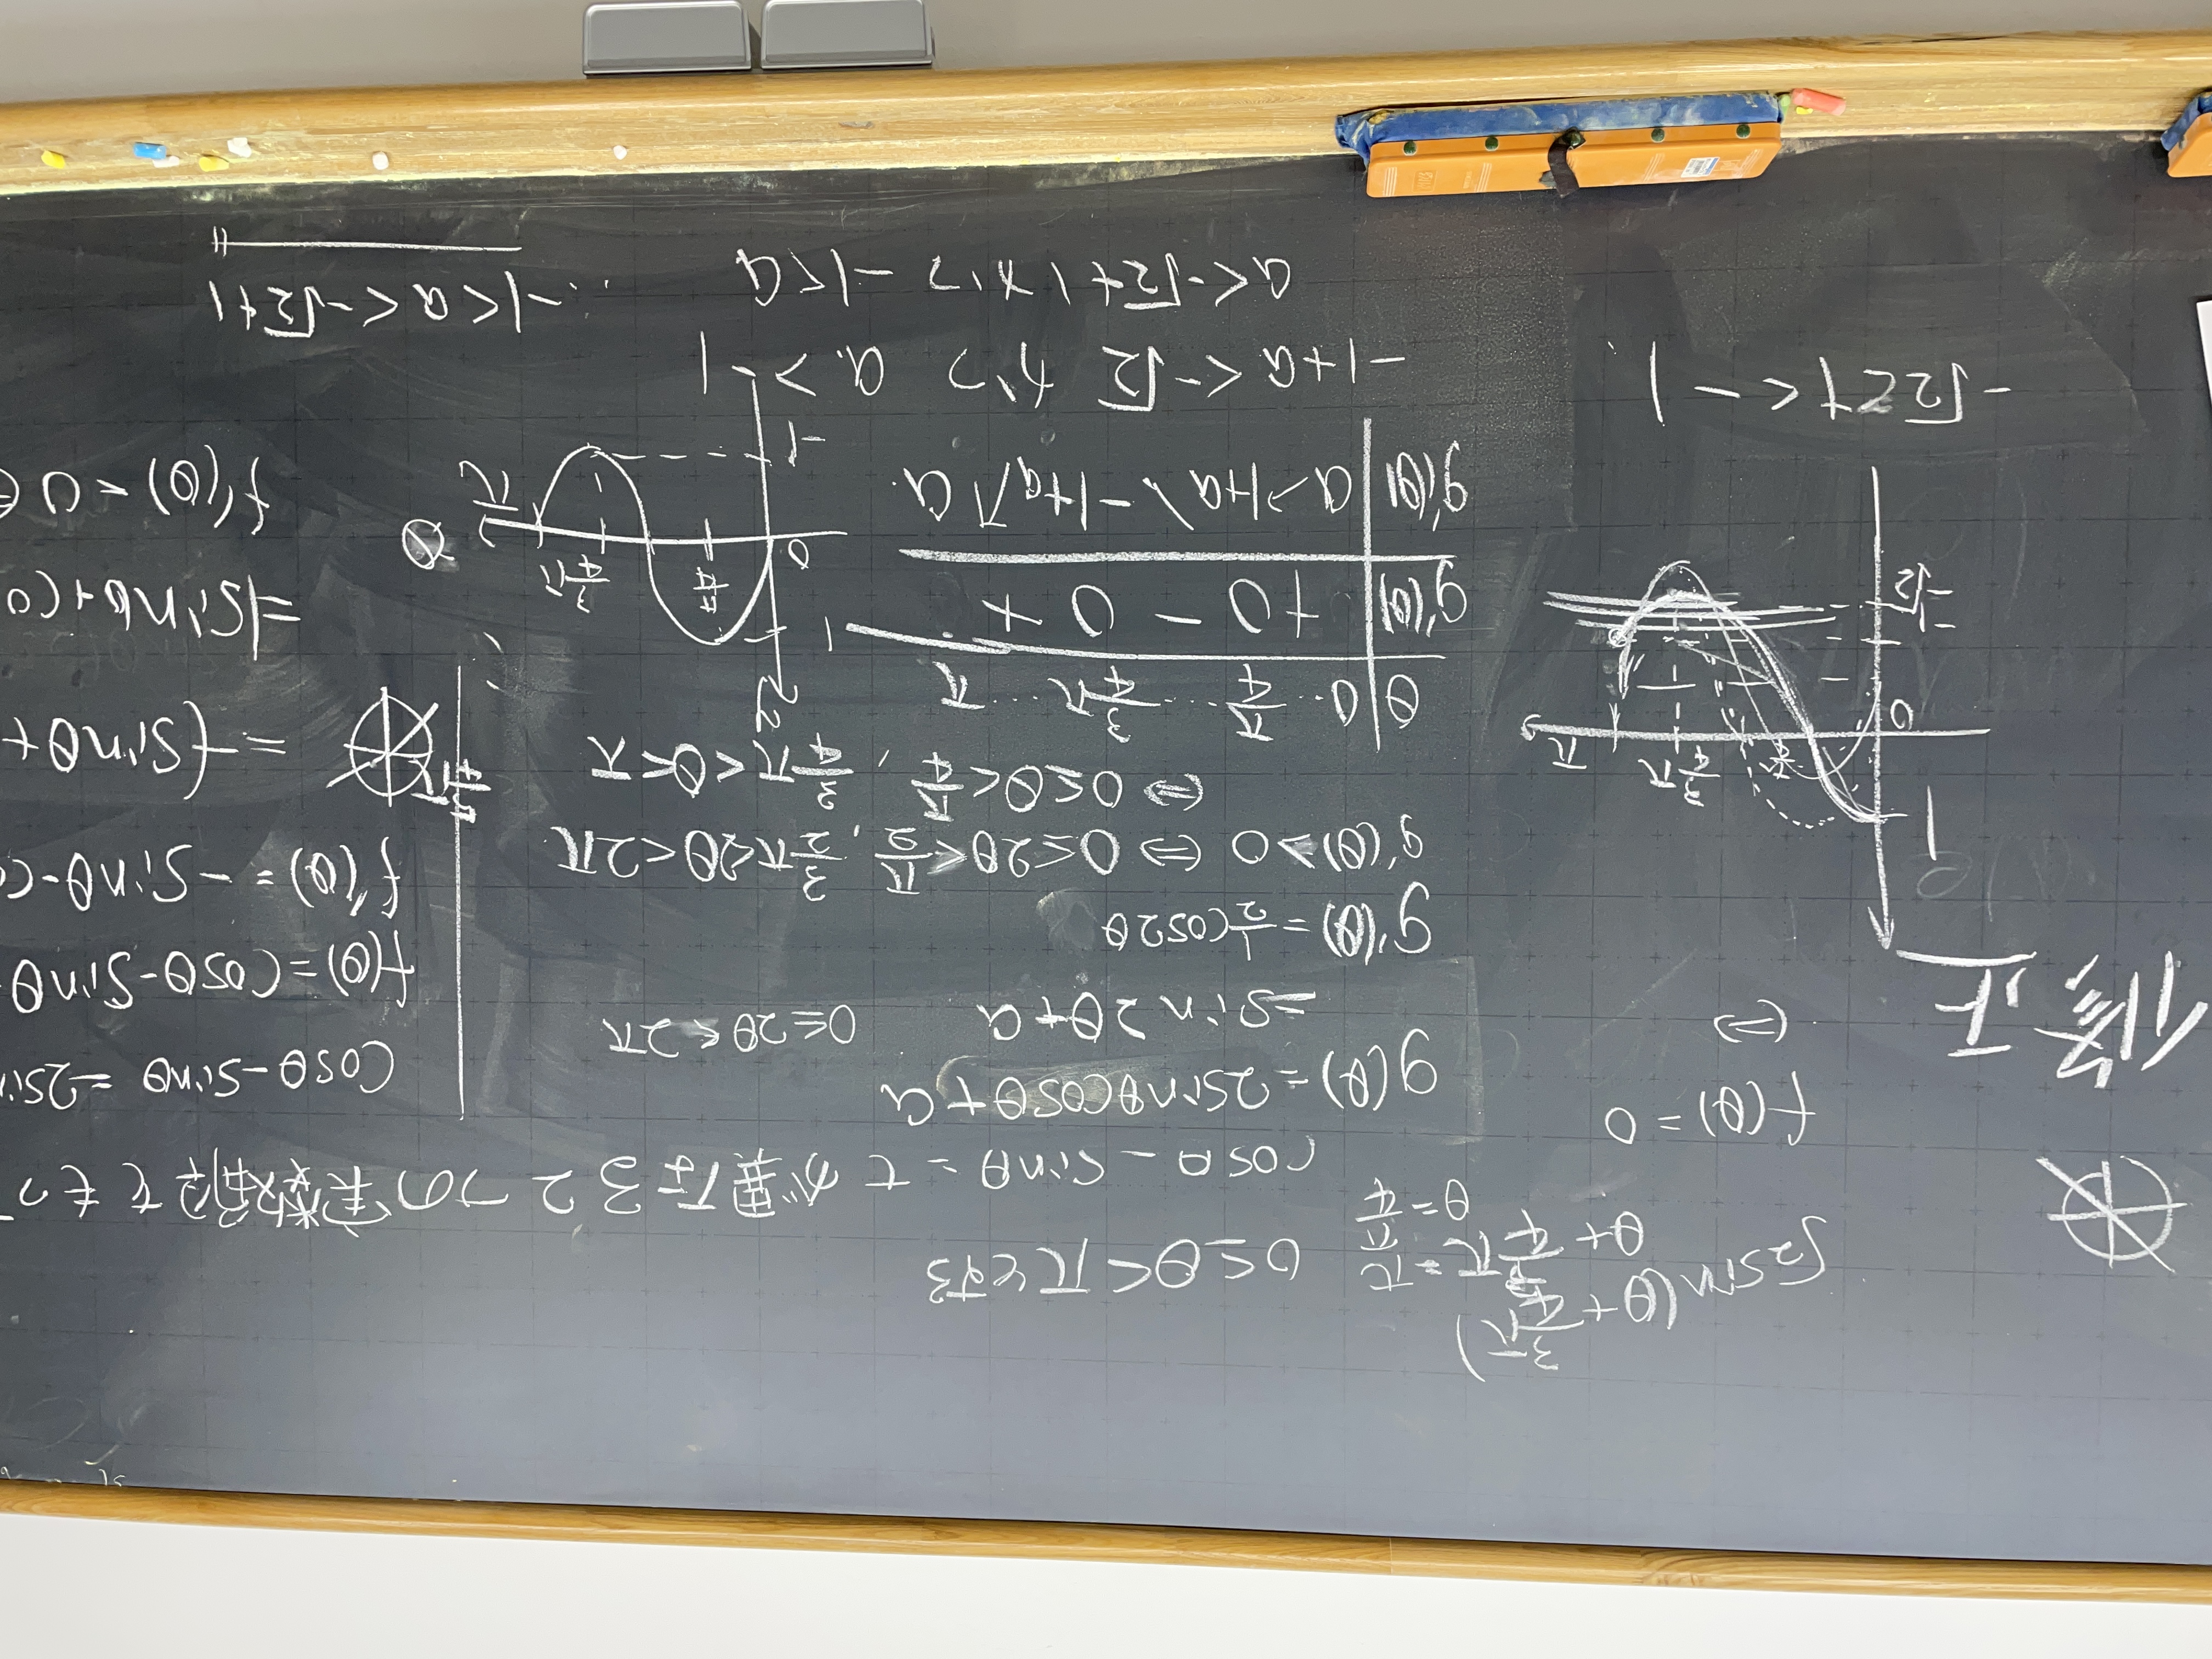 √2sin(θ+3/4π)
θ+3/4π=π
θ=π/4
0≤θ<πとする
cosθ-sinθ=tが異なる2つの実数解をもつ
f(θ)=0
⇔
修正
g(θ)=2sinθcosθ+a
=sin2θ+a
0≤2θ<2π
g'(θ)=1/2cos2θ
g'(θ)>0 ⇔ 0≤2θ<π/2, 3/2π<2θ<2π
⇔ 0≤θ<π/4, 3/4π<θ<π
θ 0 … π/4 … 3/4π … π
g'(θ) + 0 - 0 +
g'(θ) a ↗ 1+a ↘ -1+a ↗ a
1
3/4π
π
0
-1
-√2
-√2≤t<-1
1
π/4
3/4π
0
π
θ
-1
-1+a<-√2 かつ a>-1
a<-√2+1 かつ -1<a
∴-1<a<-√2+1
cosθ-sinθ=2sin
f(θ)=cosθ-sinθ
f'(θ)=-sinθ-co
=-(sinθ+
=|sinθ+co
f'(θ)<0